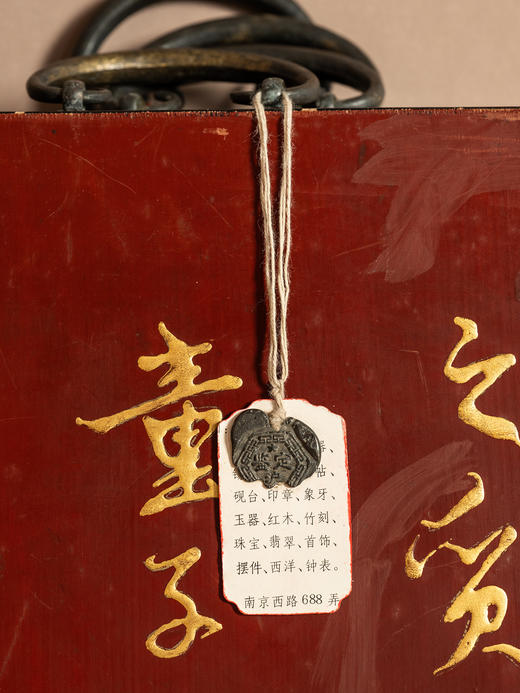 之
童子
器、
帖、
砚台、印章、象牙、
玉器、红木、竹刻、
珠宝、翡翠、首饰、
摆件、西洋、钟表。
南京西路 688 弄